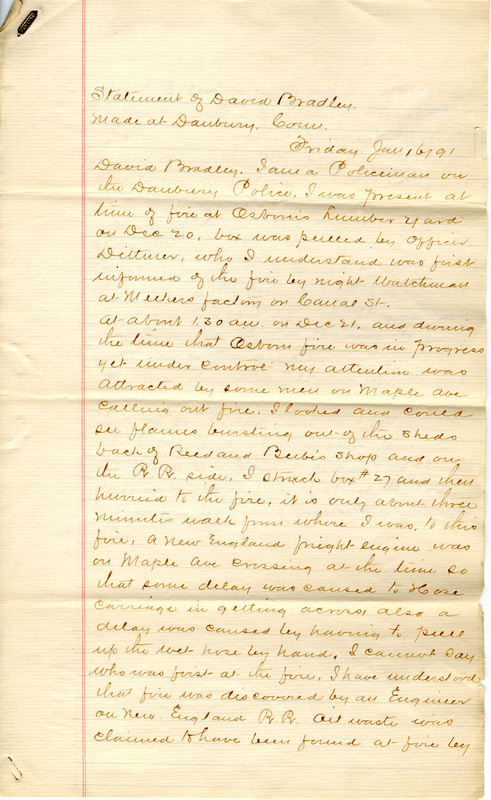 Statement of David Bradley.
Made at Danbury, Conn.
Friday Jan 16/91
David Bradley. I am a Policeman on
the Danbury Police. I was present at
time of fire at Osborns Lumber Yard
on Dec 20, box was pulled by officer
Dittmer, who I understand was first
informed of the fire by night Watchman
at Meekers factory on Canal St.
At about 1.30 am. on Dec 21, and during
the time that Osborn fire was in progress
yet under control my attention was
attracted by some men on Maple ave
calling out fire, I looked and could
see flames bursting out of the sheds
back of Reed and Beebis shop and on
the R.R. side. I struck box #27 and then
hurried to the fire, it is only about three
minutes walk from where I was, to this
fire, a New England freight engine was
on Maple Ave crossing at the time so
that some delay was caused to Hose
carriage in getting across, also a
delay was caused by having to pull
up the wet hose by hand. I cannot say
who was first at the fire, I have understood
that fire was discovered by an Engineer
on New England R.R. Oil waste was
claimed to have been found at fire by